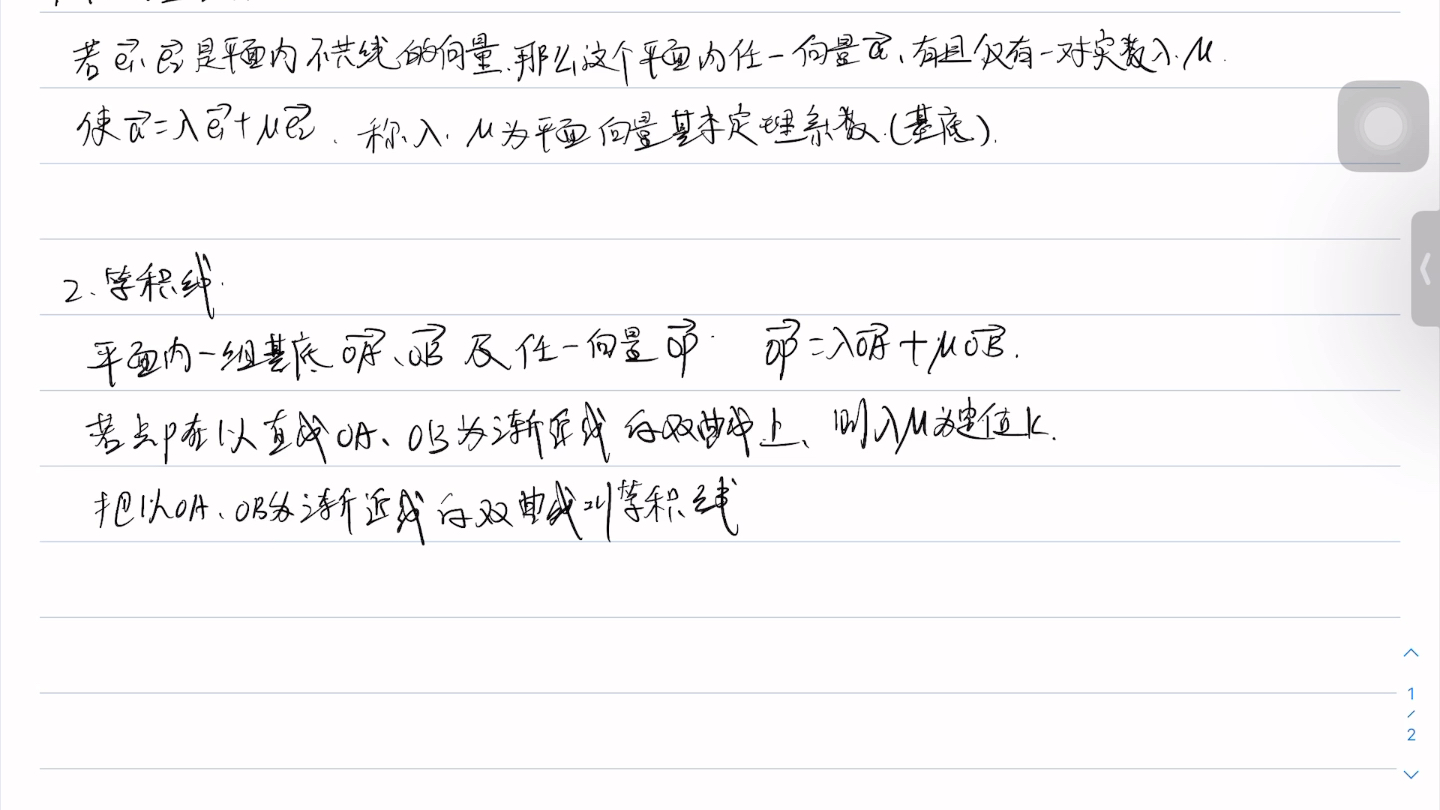 若e₁、e₂是平面内不共线的向量,那么这个平面内任一向量a,有且仅有一对实数λ、μ.
使a=λe₁+μe₂.称λ、μ为平面向量基本定理系数.(基底).
2.等积线.
平面内一组基底OA、OB及任一向量OP. OP=λOA+μOB.
若点P在以直线OA、OB为渐近线的双曲线上、则λμ为定值k.
把以OA、OB为渐近线的双曲线叫等积线
1
/
2